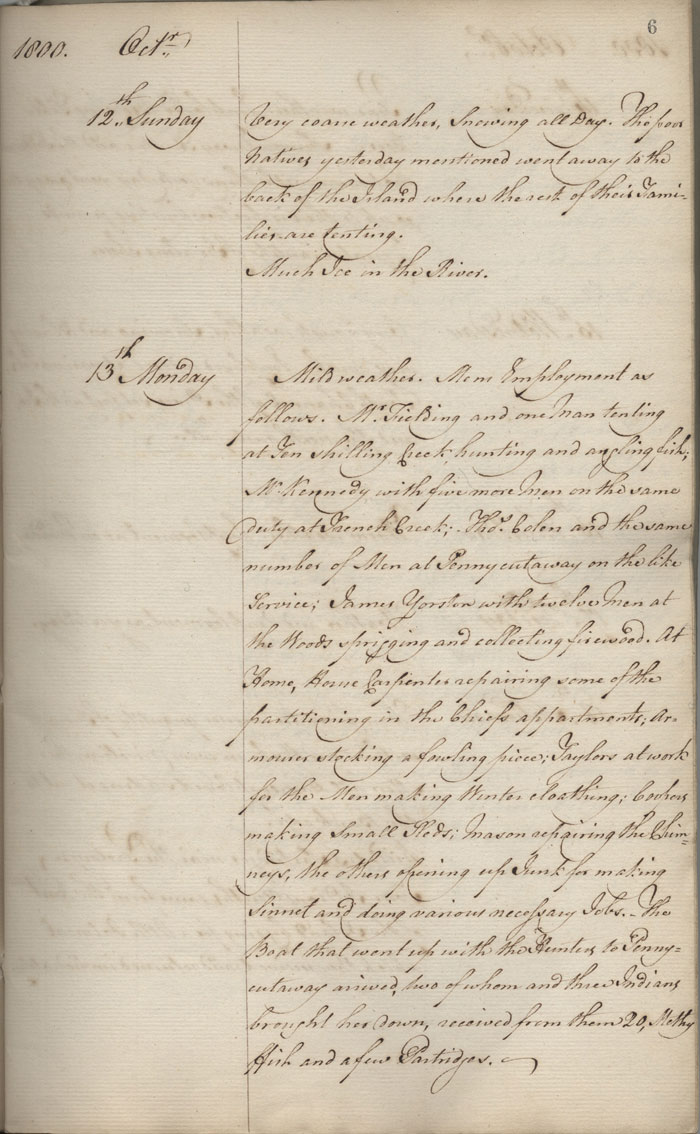 6
1800. Octr.
12th. Sunday
Very coarse weather, Snowing all Day. The poor
Natives yesterday mentioned went away to the
back of the Island where the rest of their Fami-
lies are tenting.
Much Ice in the River.
13th Monday
Mild weather. Mens Employment as
follows. Mr. Fielding and one Man tenting
at Ten shilling Creek, hunting and angling fish;
Mr. Kennedy with five more Men on the same
duty at French Creek; Thos. Colen and the same
number of Men at Pennycutaway on the like
Service; James Yorston with twelve Men at
the Woods sprigging and collecting firewood. At
Home, House Carpenter repairing some of the
partitioning in the Chiefs appartments; Ar-
mourer stocking a fowling piece; Taylors at work
for the Men making Winter cloathing; Coopers
making Small Sleds; Mason repairing the Chim=
neys, the others opening up Junk for making
Sinnet and doing various necessary Jobs. - The
Boat that went up with the Hunters to Penny=
cutaway arrived, two of whom and three Indians
brought her down, received from them 20, Methy
ffish and a few Partridges.